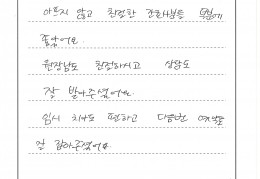 아프지 않고 친절한 간호사분들 덕분에
좋았어요.
원장님도 친절하시고 상담도
잘 받아주셨어요.
임시 치아도 편하고 다음번
잘 감아주셨어요